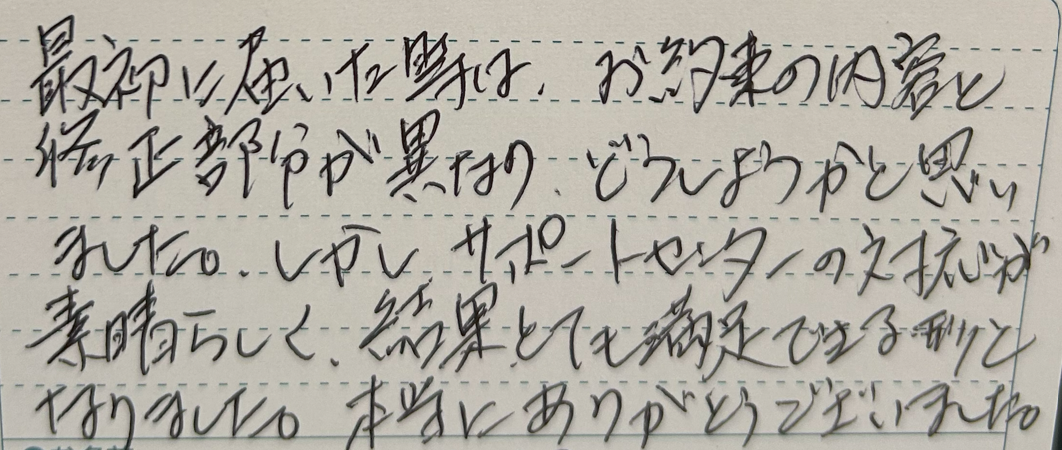 最初に届いた時は、お約束の内容と
修正部分が異なり、どうしようかと思い
ました。しかし、サポートセンターの対応が
素晴らしく、結果とても満足できる形と
なりました。本当にありがとうございました。